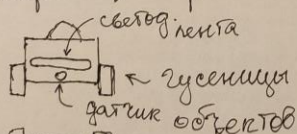 светод. лента
гусеницы
датчик объектов